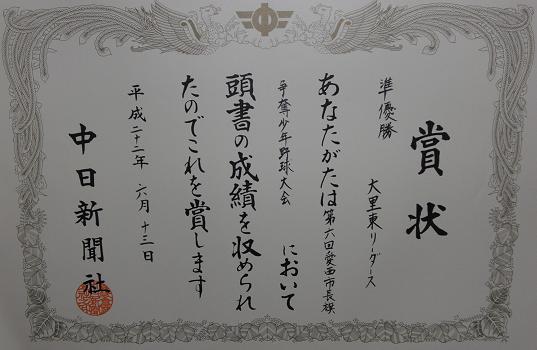 賞状
準優勝
大里東リーダース
あなたがたは第六回愛西市長旗
争奪少年野球大会 において
頭書の成績を収められ
たのでこれを賞します
平成二十二年 六月 十三日
中日新聞社